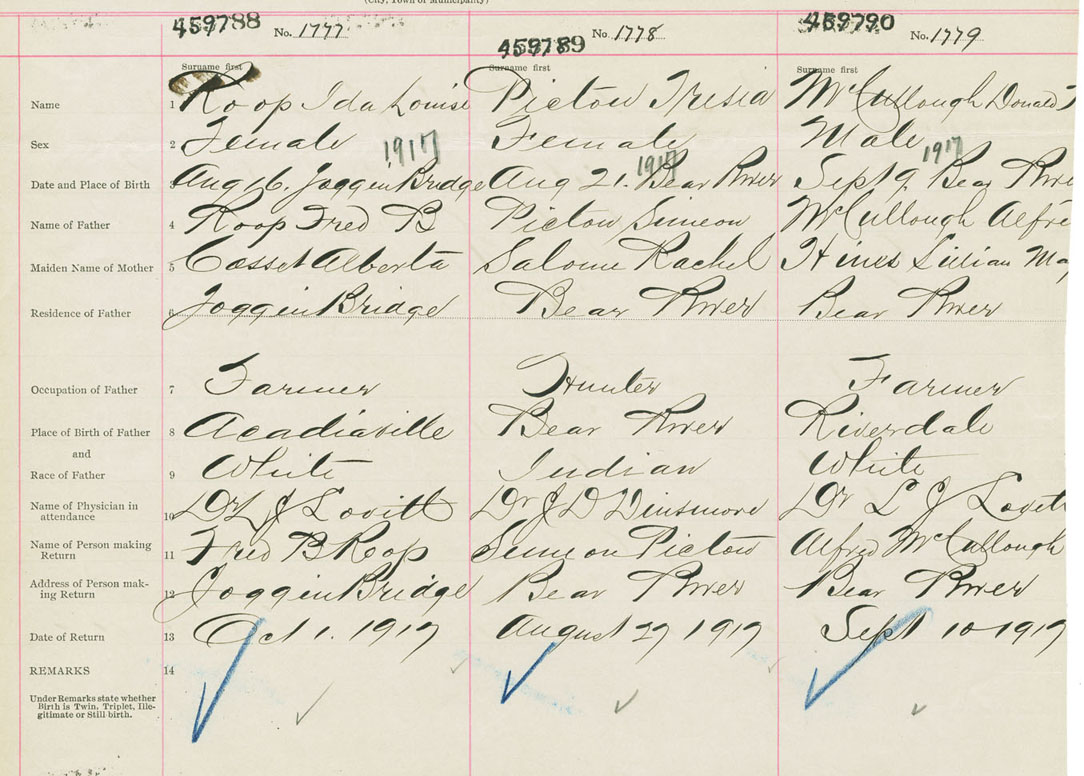 (City, Town or Municipality)
459788 No. 1777
459789 No. 1778
459790 No. 1779
Surname first Surname first Surname first
Name 1 Roop Ida Louise Picton Tresia McCullough Donald
Sex 2 Female Female Male
1917 1917 1917
Date and Place of Birth Aug 16. Joggin Bridge Aug 21. Bear River Sept 9. Bear
Name of Father 4 Roop Fred B Picton Simeon McCullough
Maiden Name of Mother 5 Cosset Alberta Salome Rachel Hines Lillian
Residence of Father 6 Joggin Bridge Bear River Bear River
Occupation of Father 7 Farmer Hunter Farmer
Place of Birth of Father 8 Acadiaville Bear River Riverdale
and
Race of Father 9 White Indian White
Name of Physician in
attendance 10 Dr L J Lovitt Dr J D Dinsmore Dr L J Lovitt
Name of Person making
Return 11 Fred B Roop Simeon Picton Alfred McCullough
Address of Person mak-
ing Return 12 Joggin Bridge Bear River Bear River
Date of Return 13 Oct 1. 1917 August 27 1917 Sept 10 1917
REMARKS 14
Under Remarks state whether
Birth is Twin, Triplet, Ille-
gitimate or Still birth.